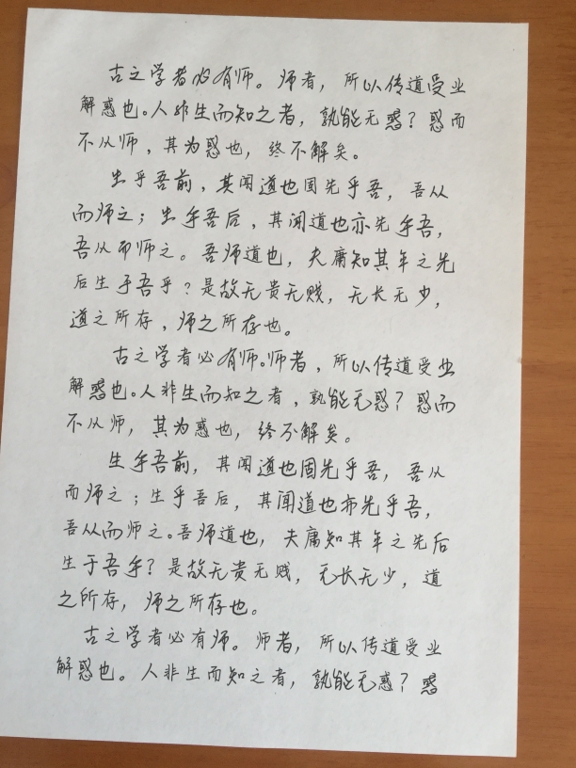 古之学者必有师。师者，所以传道受业
解惑也。人非生而知之者，孰能无惑？惑而
不从师，其为惑也，终不解矣。
生乎吾前，其闻道也固先乎吾，吾从
而师之；生乎吾后，其闻道也亦先乎吾，
吾从而师之。吾师道也，夫庸知其年之先
后生于吾乎？是故无贵无贱，无长无少，
道之所存，师之所存也。
古之学者必有师。师者，所以传道受业
解惑也。人非生而知之者，孰能无惑？惑而
不从师，其为惑也，终不解矣。
生乎吾前，其闻道也固先乎吾，吾从
而师之；生乎吾后，其闻道也亦先乎吾，
吾从而师之。吾师道也，夫庸知其年之先后
生于吾乎？是故无贵无贱，无长无少，道
之所存，师之所存也。
古之学者必有师。师者，所以传道受业
解惑也。人非生而知之者，孰能无惑？惑